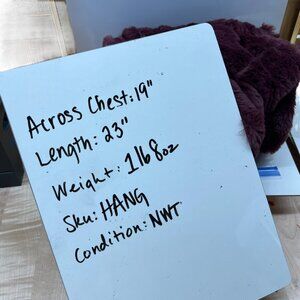 Across Chest: 19"
Length: 23"
Weight: 1lb 8oz
Sku: HANG
Condition: NWT